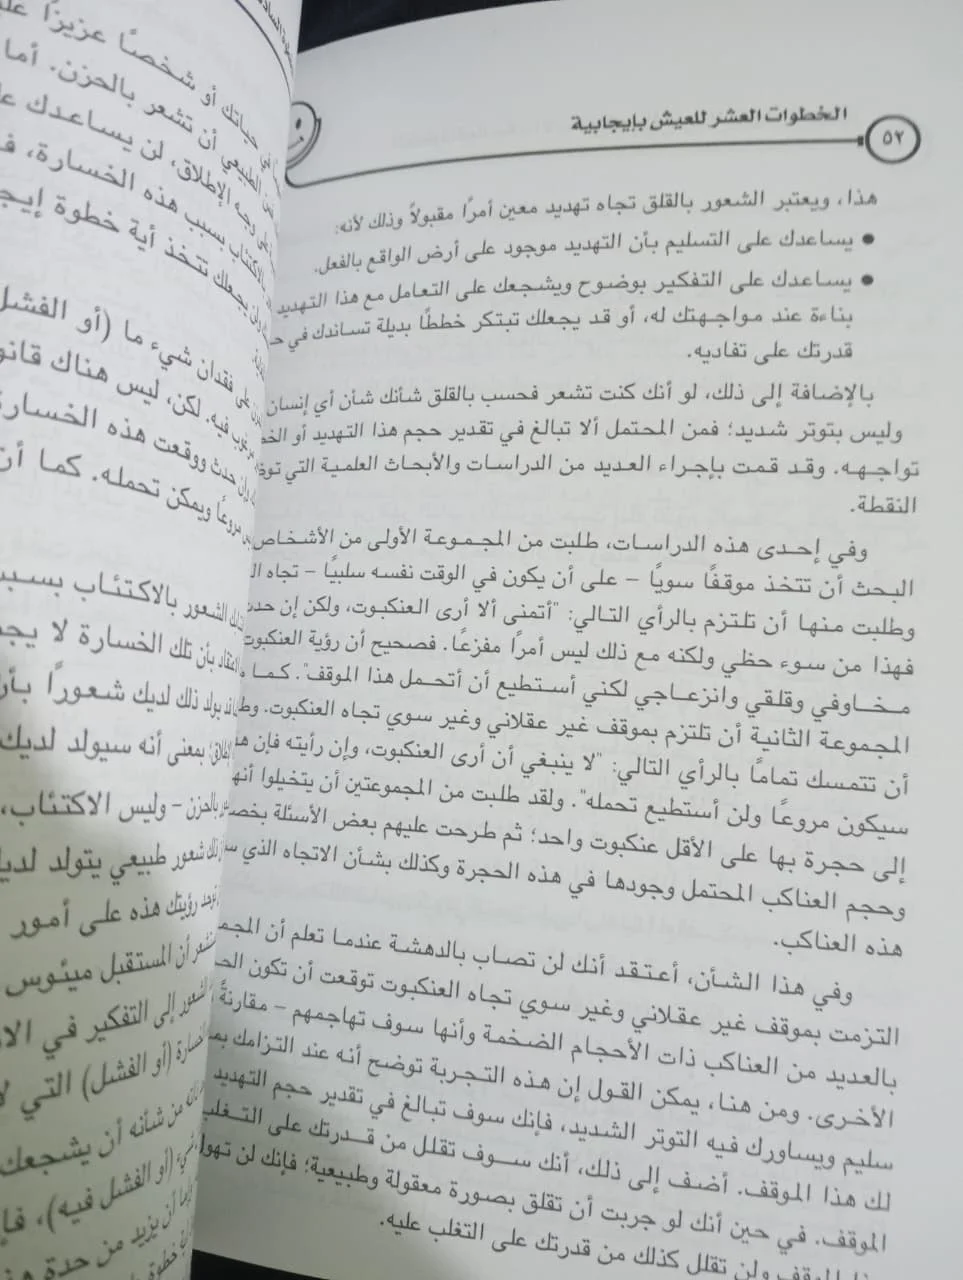 ٥٢
الخطوات العشر للعيش بإيجابية
هذا، ويعتبر الشعور بالقلق تجاه تهديد معين أمرًا مقبولاً وذلك لأنه:
● يساعدك على التسليم بأن التهديد موجود على أرض الواقع بالفعل.
● يساعدك على التفكير بوضوح ويشجعك على التعامل مع هذا التهديد
بناءة عند مواجهتك له، أو قد يجعلك تبتكر خططًا بديلة تساندك في
قدرتك على تفاديه.
بالإضافة إلى ذلك، لو أنك كنت تشعر فحسب بالقلق شأنك شأن أي إنسان
وليس بتوتر شديد؛ فمن المحتمل ألا تبالغ في تقدير حجم هذا التهديد أو
تواجهه. وقد قمت بإجراء العديد من الدراسات والأبحاث العلمية التي
النقطة.
وفي إحدى هذه الدراسات، طلبت من المجموعة الأولى من الأشخاص
البحث أن تتخذ موقفًا سويًا – على أن يكون في الوقت نفسه سلبيًا – تجاه
وطلبت منها أن تلتزم بالرأي التالي: "أتمنى ألا أرى العنكبوت، ولكن إن
فهذا من سوء حظي ولكنه مع ذلك ليس أمرًا مفزعًا. فصحيح أن رؤية العنكبوت
مخاوفي وقلقي وانزعاجي لكني أستطيع أن أتحمل هذا الموقف". كما
المجموعة الثانية أن تلتزم بموقف غير عقلاني وغير سوي تجاه العنكبوت.
أن تتمسك تمامًا بالرأي التالي: "لا ينبغي أن أرى العنكبوت، وإن رأيته فإن
سيكون مروعًا ولن أستطيع تحمله". ولقد طلبت من المجموعتين أن يتخيلوا
إلى حجرة بها على الأقل عنكبوت واحد؛ ثم طرحت عليهم بعض الأسئلة
وحجم العناكب المحتمل وجودها في هذه الحجرة وكذلك بشأن الاتجاه الذي
هذه العناكب.
وفي هذا الشأن، أعتقد أنك لن تصاب بالدهشة عندما تعلم أن
التزمت بموقف غير عقلاني وغير سوي تجاه العنكبوت توقعت أن تكون
بالعديد من العناكب ذات الأحجام الضخمة وأنها سوف تهاجمهم – مقارنةً
الأخرى. ومن هنا، يمكن القول إن هذه التجربة توضح أنه عند التزامك
سليم ويساورك فيه التوتر الشديد، فإنك سوف تبالغ في تقدير حجم التهديد
لك هذا الموقف. أضف إلى ذلك، أنك سوف تقلل من قدرتك على
الموقف. في حين أنك لو جربت أن تقلق بصورة معقولة وطبيعية؛ فإنك لن
الموقف ولن تقلل كذلك من قدرتك على التغلب عليه.
حياتك أو شخصًا عزيزًا
الطبيعي أن تشعر بالحزن. أما
وجه الإطلاق، لن يساعدك
بسبب هذه الخسارة،
يجعلك تتخذ أية خطوة
على فقدان شيء ما (أو الفشل
فيه. لكن، ليس هناك
حدث ووقعت هذه الخسارة
مروعًا ويمكن تحمله. كما أن
الشعور بالاكتئاب
بأن تلك الخسارة لا
يولد ذلك لديك شعورًا
بمعنى أنه سيولد لديك
بالحزن – وليس الاكتئاب،
شعور طبيعي يتولد
رؤيتك هذه على أمور
أن المستقبل ميئوس
الشعور إلى التفكير في
(أو الفشل) التي
من شأنه أن يشجعك
(أو الفشل فيه)،
أن يزيد من حدة